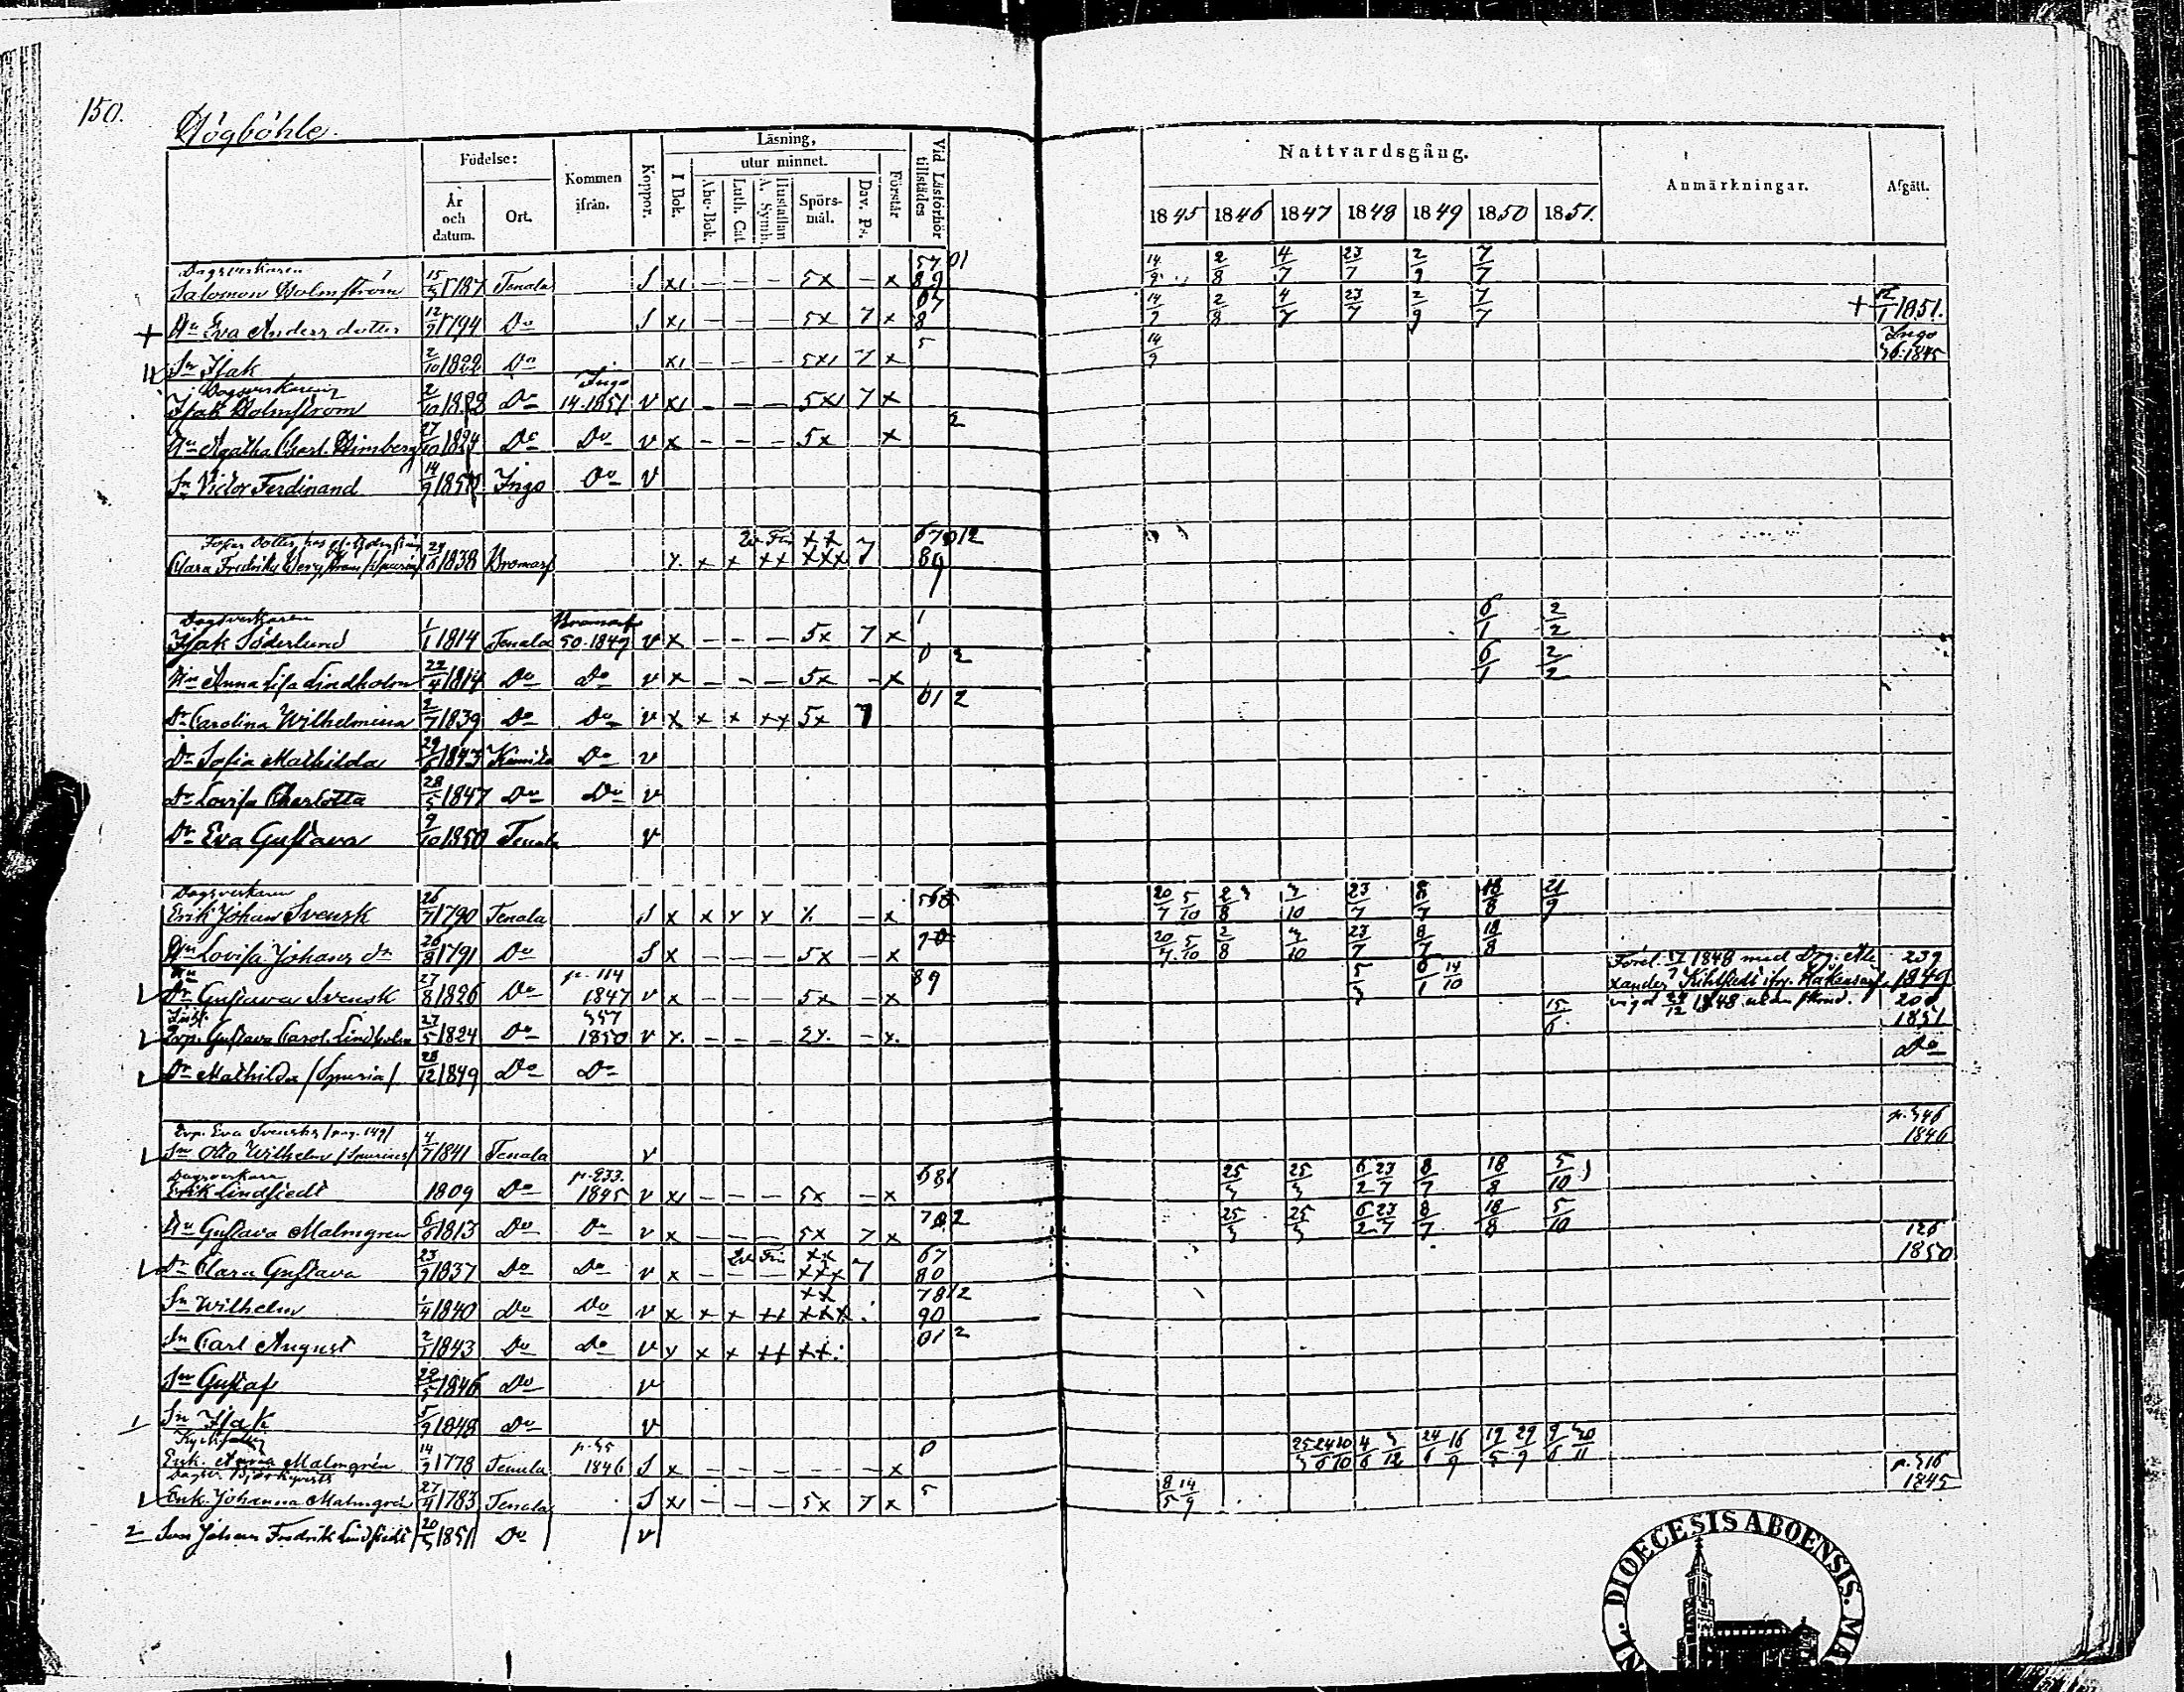 150.
Högböhle.
Födelse: Kommen ifrån. Koppor. Läsning, Vid Läsförhör tillstädes
År och datum. Ort. I Bok. utur minnet. Förstår
Abc-Bok. Luth. Cat. Hustaflan A. Symb. Spörsmål. Dav. Ps.
Nattvardsgång. Anmärkningar. Afgått.
1845 1846 1847 1848 1849 1850 1851.
Dagsverkaren
Salomon Holmström 15/3 1787 Tenala S x1 – – – 5x – x 57 01 89 14/9 2/8 4/7 23/7 2/9 7/7
+ Hu Eva Andersdotter 12/9 1794 Do S x1 – – – 5x 7 x 67 8 14/9 2/8 4/7 23/7 2/9 7/7 + 12/1 1851.
Sn Isak 2/10 1822 Do x1 – – – 5x1 7 x 5 14/9 Ingo 36.1845
Dagsverkaren
Isak Holmström 2/10 1822 Do Ingo 14.1851 v x1 – – – 5x1 7 x
Hu Agatha Charl. Limberg 27/10 1824 Do Do v x – – – 5x x 2
Sn Victor Ferdinand 14/9 1850 Ingo Do v
Clara Fredrika Bergström /spuria/ 24/6 1838 Bromarf x. x x xx xxx 7 67 012 89
Dagsverkaren
Isak Söderlund 1/1 1814 Tenala Bromarf 50.1849 v x – – – 5x 7 x 1 6/1 2/2
Hu Anna Lisa Lindholm 22/4 1814 Do Do v x – – – 5x – x 0 2 6/1 2/2
Dr Carolina Wilhelmina 2/7 1839 Do Do v x x x xx 5x 7 01 2
Dr Sofia Mathilda 29/6 1843 Kimito Do v
Dr Lovisa Charlotta 28/5 1847 Do Do v
Dr Eva Gustava 9/10 1850 Tenala v
Dagsverkaren
Erik Johan Svensk 26/7 1790 Tenala S x x x x – x 20/7 5/10 2/8 3/10 23/7 8/7 18/8 21/9
Hu Lovisa Johans dr 26/8 1791 Do S x – – – 5x – x 20/7 5/10 2/8 3/10 23/7 8/7 18/8
Dr Gustava Svensk 27/8 1826 Do p. 114 1847 v x – – – 5x – x 89 5/3 6/1 14/10 239 1849
Gustava Carol. Lindholm 27/5 1824 Do 357 1850 v x. – – – 2x. – x. 15/6 1851
Dr Mathilda /Spuria/ 28/12 1849 Do Do Do
Eva Svensks /pag. 149/
Sn Otto Wilhelm /Spurius/ 4/7 1841 Tenala v p. 346 1846
Dagsverkaren
Erik Lindstedt 1809 Do p. 233. 1845 v x1 – – – 5x – x 681 25/3 25/3 6/2 23/7 8/7 18/8 5/10
Hu Gustava Malmgren 6/6 1813 Do Do v x – – – 5x 7 x 702 25/3 25/3 6/2 23/7 8/7 18/8 5/10
Dr Clara Gustava 23/9 1837 Do Do v x – – – xx xxx 7 67 80 126 1850
Sn Wilhelm 1/4 1840 Do Do v x x x xx xx xxx 7812 90
Sn Carl August 2/1 1843 Do Do v x x x xx xx 01 2
Sn Gustaf 22/5 1846 Do v
Sn Isak 5/9 1848 Do v
Enk. Anna Malmgrén 14/9 1778 Tenala p. 35 1846 S x – – – – – x 0 25/3 24/6 10/10 4/6 3/12 24/6 16/9 19/5 29/9 9/6 30/11
Enk. Johanna Malmgrén 27/4 1783 Tenala S x1 – – – 5x 7 x 5 8/5 14/9 p. 316 1845
2 Son Johan Fredrik Lindstedt 20/3 1851 Do v
DIOECESIS ABOENSIS.